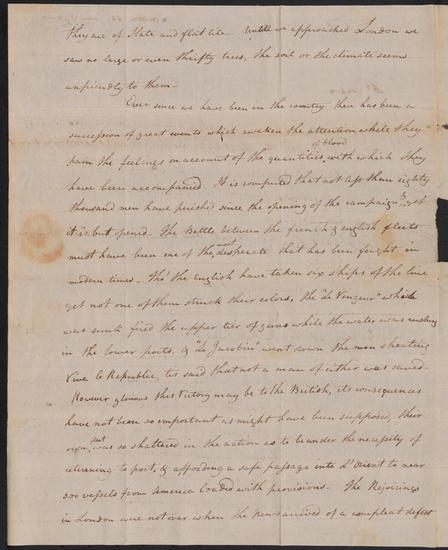 they are of Slate and flat tile - Untill we approached London we
saw no large or even thrifty trees, the soil or the climate seems
unfriendly to them -
Ever since we have been in the country there has been a
succession of great events which awaken the attention while they
of blood
pain the feelings on account of the quantities with which they
have been accompanied. It is computed that not less than eighty
thousand men have perished since the opening of the campaign & yet
it is but opened. The Battle between the french & english fleets
most
must have been one of the desperate that has been fought in
modern times - Tho' the English have taken six ships of the line
yet not one of them struck their colors, the "de Vengeur" which
was sunk fired the upper tier of guns while the water was rushing
in the lower ports, & "de Jacobin" went down the men shouting
Vive le Republic, tis said that not a man of either was saved -
However glorious this Victory may be to the British, its consequences
have not been so important as might have been supposed, their
own fleet was so shattered in the action as to be under the necessity of
returning to port, & affording a safe passage into L'Orient to near
200 vessels from America loaded with provisions - The Rejoicings
in London were not over when the news arrived of a compleat defeat